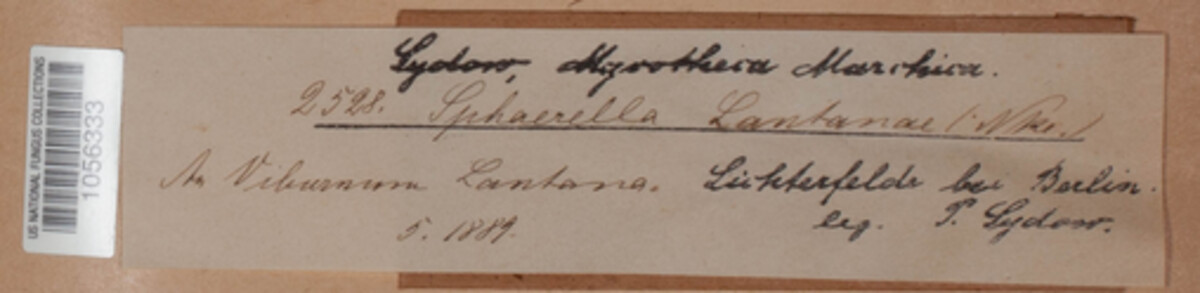 Sydow, Mycotheca Marchica.
2528. Sphaerella Lantanae (Nke.)
An Viburnum Lantana. Lichterfelde bei Berlin.
5. 1889. leg. P. Sydow.
US NATIONAL FUNGUS COLLECTIONS
1056333